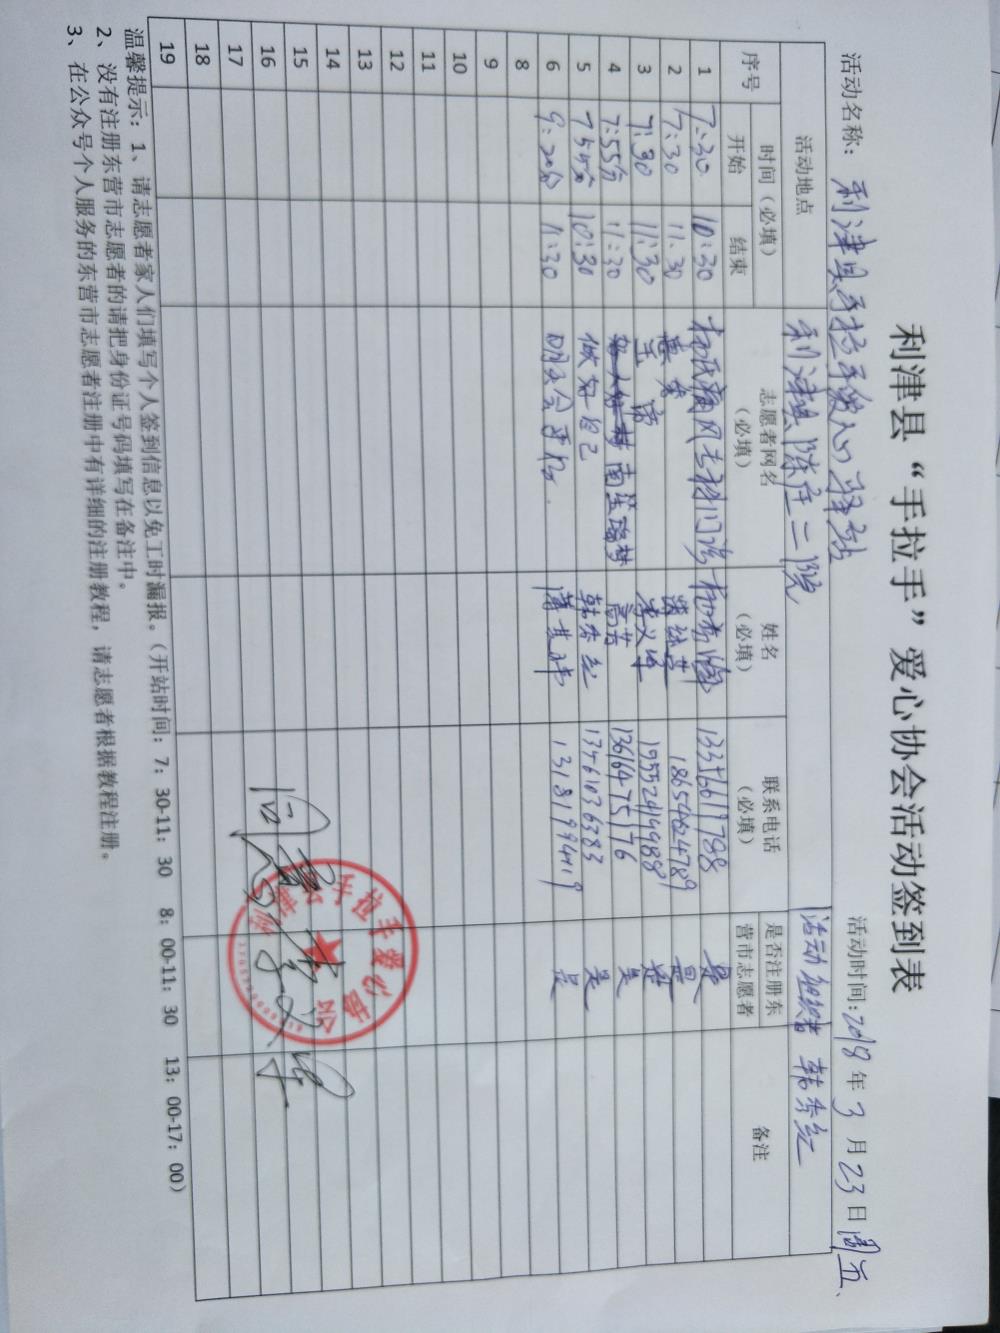 利津县“手拉手”爱心协会活动签到表
活动名称： 利津县手拉手爱心驿站 活动时间：2018 年 3 月 23 日 周五
活动地点 利津县陈庄二院 活动组织者 韩秀红
序号 时间（必填） 志愿者网名（必填） 姓名（必填） 联系电话（必填） 是否注册东营市志愿者 备注
开始 结束
1 7:30 10:30 13356617988 是
2 7:30 11:30 18654624789 是
3 7:30 11:30 李义军 是
4 7:55分 11:30 高芳 13616475176 是
5 7 55分 10:30 做好自己 韩秀红 13461036383 是
6 9:20分 11:30 明天会更好. 13181994419 是
8
9
10
11
12
13
14
15
16
17
18
19
温馨提示： 1、 请志愿者家人们填写个人签到信息以免工时漏报。（开站时间：7：30-11：30 8：00-11：30 13：00-17：00）
2、 没有注册东营市志愿者的请把身份证号码填写在备注中。
3、 在公众号个人服务的东营市志愿者注册中有详细的注册教程， 请志愿者根据教程注册。